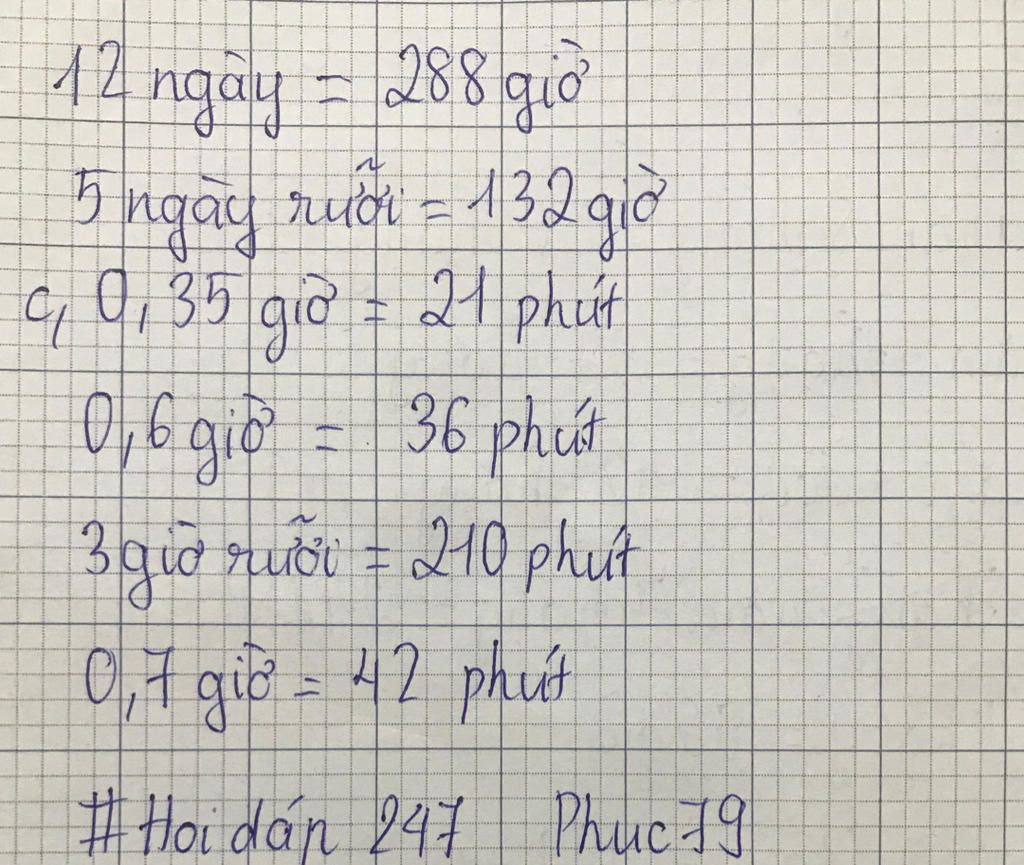 12 ngày = 288 giờ
5 ngày rưỡi = 132 giờ
c, 0,35 giờ = 21 phút
0,6 giờ = 36 phút
3 giờ rưỡi = 210 phút
0,7 giờ = 42 phút
#Hoi dán 247 Phuc79